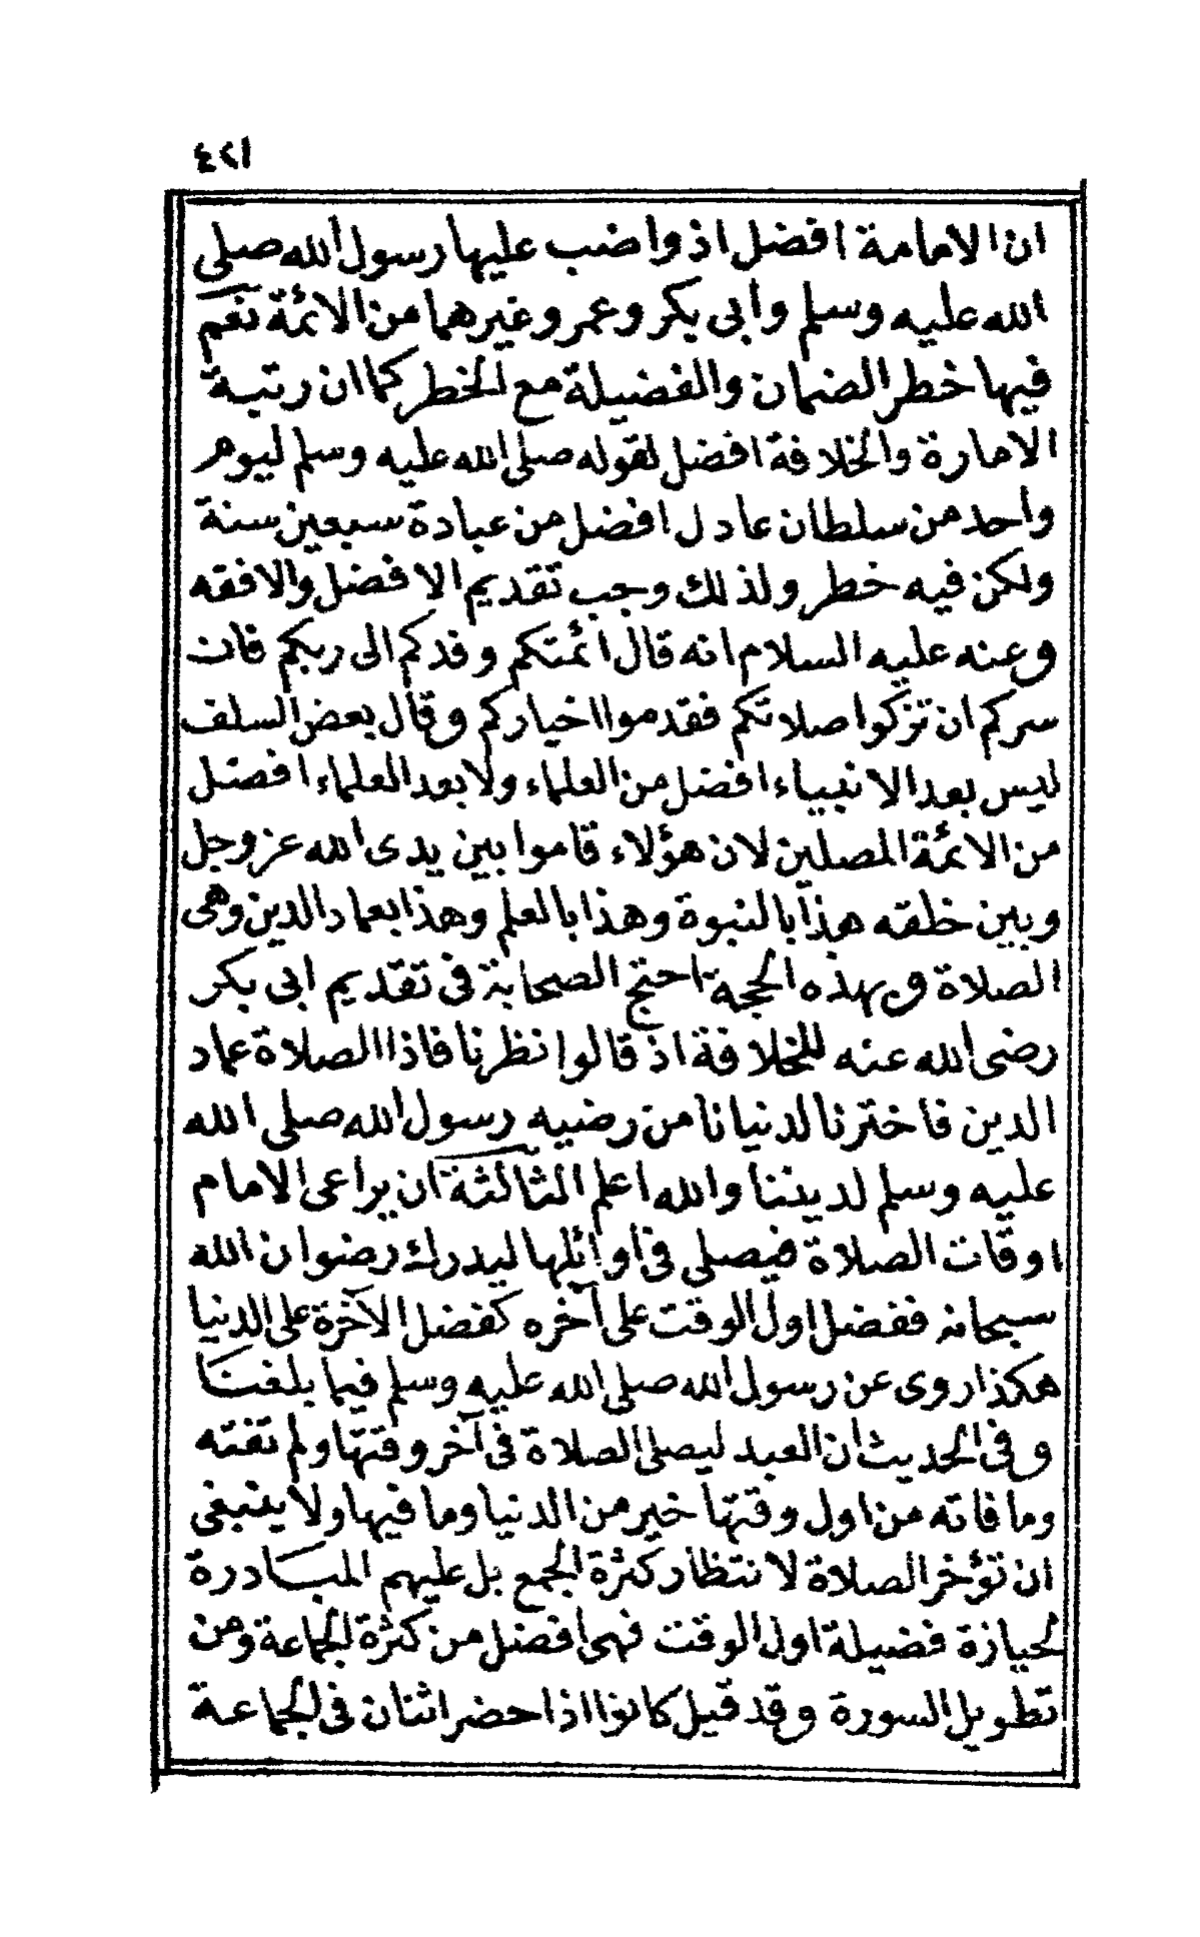 ٤٢١
ان الامامة افضل اذ واضب عليها رسول الله صلى
الله عليه وسلم وابى بكر وعمر وغيرهما من الائمة نعم
فيها خطر الضمان والفضيلة مع الخطر كما ان رتبة
الامارة والخلافة افضل لقوله صلى الله عليه وسلم ليوم
واحد من سلطان عادل افضل من عبادة سبعين سنة
ولكن فيه خطر ولذلك وجب تقديم الافضل والافقه
وعنه عليه السلام انه قال ائمتكم وفدكم الى ربكم فان
سركم ان تزكوا صلاتكم فقدموا اخياركم وقال بعض السلف
ليس بعد الانبياء افضل من العلماء ولا بعد العلماء افضل
من الائمة المصلين لان هؤلاء قاموا بين يدى الله عز وجل
وبين خلقه هذا بالنبوة وهذا بالعلم وهذا بعماد الدين وهى
الصلاة وبهذه الحجة احتج الصحابة فى تقديم ابى بكر
رضى الله عنه للخلافة اذ قالوا نظرنا فاذا الصلاة عماد
الدين فاخترنا لدنيانا من رضيه رسول الله صلى الله
عليه وسلم لديننا والله اعلم الثالثة ان يراعى الامام
اوقات الصلاة فيصلى فى اوائلها ليدرك رضوان الله
سبحانه ففضل اول الوقت على آخره كفضل الآخرة على الدنيا
هكذا روى عن رسول الله صلى الله عليه وسلم فيما بلغنا
وفى الحديث ان العبد ليصلى الصلاة فى آخر وقتها ولم تفته
وما فاته من اول وقتها خير من الدنيا وما فيها ولا ينبغى
ان تؤخر الصلاة لانتظار كثرة الجمع بل عليهم المبادرة
لحيازة فضيلة اول الوقت فهى افضل من كثرة الجماعة ومن
تطويل السورة وقد قيل كانوا اذا حضر اثنان فى الجماعة